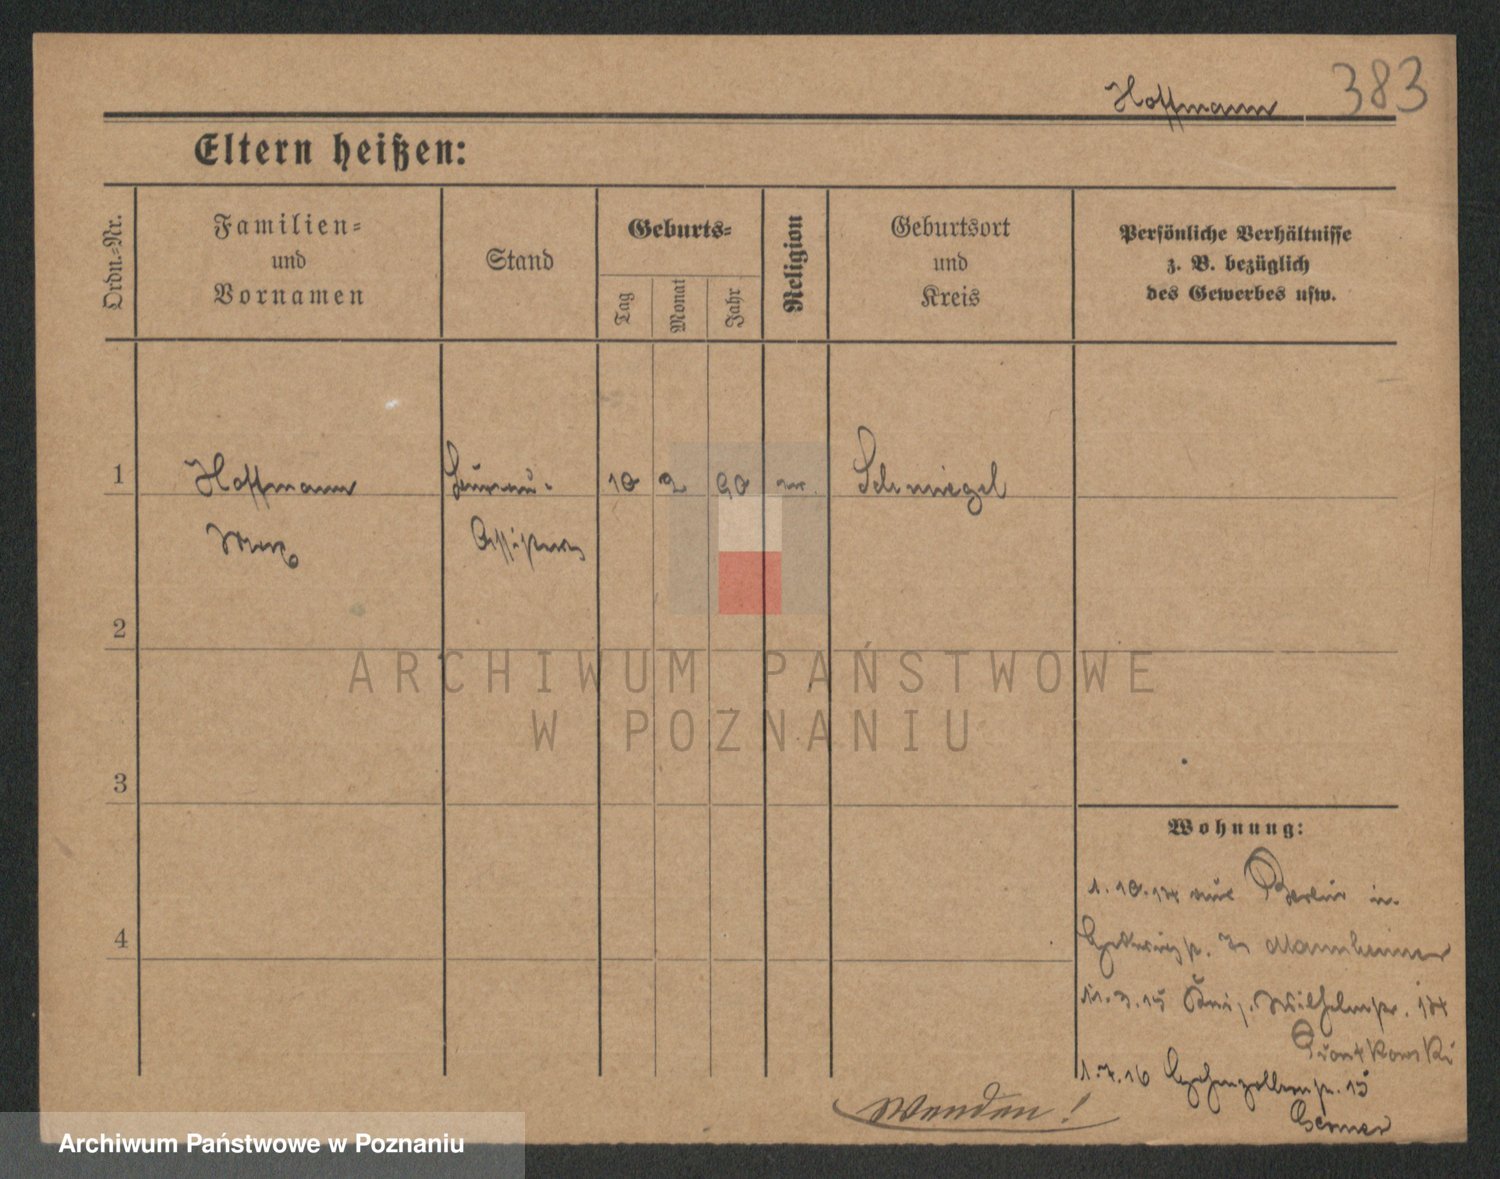 Hoffmann 383
Eltern heißen:
Ordn.-Nr.
Familien-
und
Vornamen
Stand
Geburts-
Tag
Monat
Jahr
Religion
Geburtsort
und
Kreis
Persönliche Verhältnisse
z. B. bezüglich
des Gewerbes usw.
1
Hoffmann
Max
Bureau-
Assistent
10 2 90
Schmiegel
2
ARCHIWUM PAŃSTWOWE
W POZNANIU
3
4
Wohnung:
1.10.14 aus Berlin in
Mannheimer
11.3.15 Wilhelmstr. 14
1.7.16 Hohenzollernstr. 15
Wenden!
Archiwum Państwowe w Poznaniu